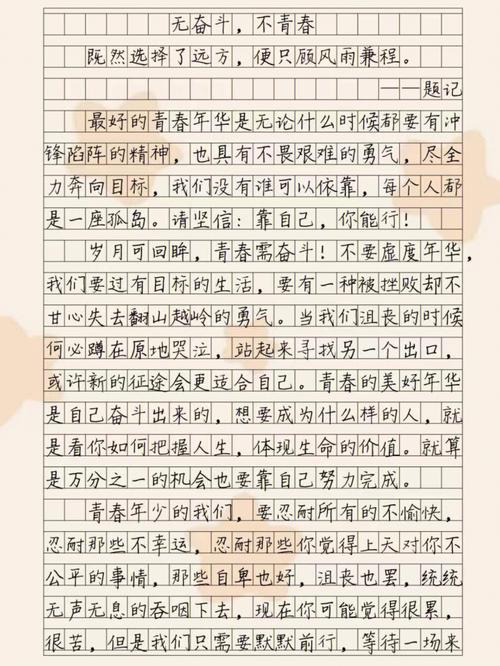 无奋斗，不青春
既然选择了远方，便只顾风雨兼程。
——题记
最好的青春年华是无论什么时候都要有冲
锋陷阵的精神，也具有不畏艰难的勇气，尽全
力奔向目标，我们没有谁可以依靠，每个人都
是一座孤岛。请坚信：靠自己，你能行！
岁月可回眸，青春需奋斗！不要虚度年华，
我们要过有目标的生活，要有一种被挫败却不
甘心失去翻山越岭的勇气。当我们沮丧的时候
何必蹲在原地哭泣，站起来寻找另一个出口，
或许新的征途会更适合自己。青春的美好年华
是自己奋斗出来的，想要成为什么样的人，就
是看你如何把握人生，体现生命的价值。就算
是万分之一的机会也要靠自己努力完成。
青春年少的我们，要忍耐所有的不愉快，
忍耐那些不幸运，忍耐那些你觉得上天对你不
公平的事情，那些自卑也好，沮丧也罢，统统
无声无息的吞咽下去，现在你可能觉得很累，
很苦，但是我们只需要默默前行，等待一场来